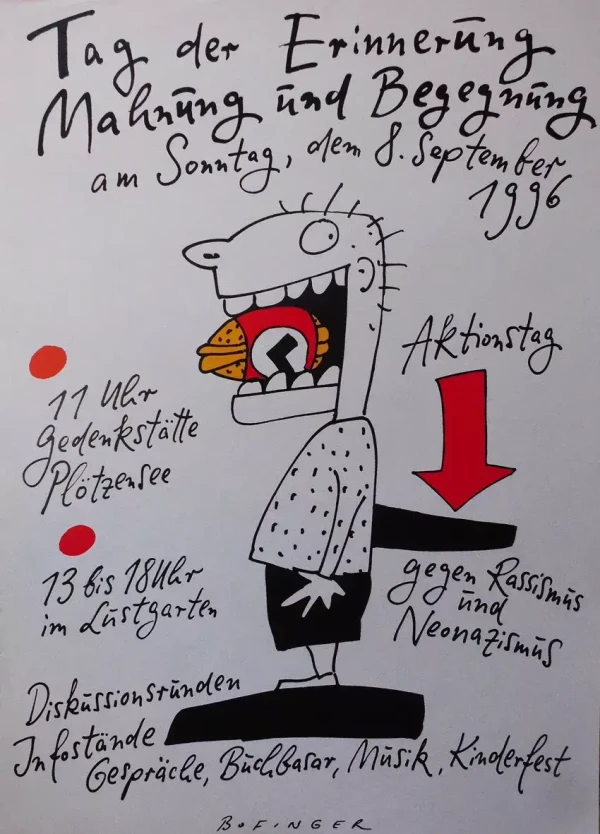 Tag der Erinnerung
Mahnung und Begegnung
am Sonntag, dem 8. September
1996
Aktionstag
11 Uhr
Gedenkstätte
Plötzensee
13 bis 18 Uhr
im Lustgarten
gegen Rassismus
und
Neonazismus
Diskussionsrunden
Infostände
Gespräche, Buchbasar, Musik, Kinderfest
BOFINGER